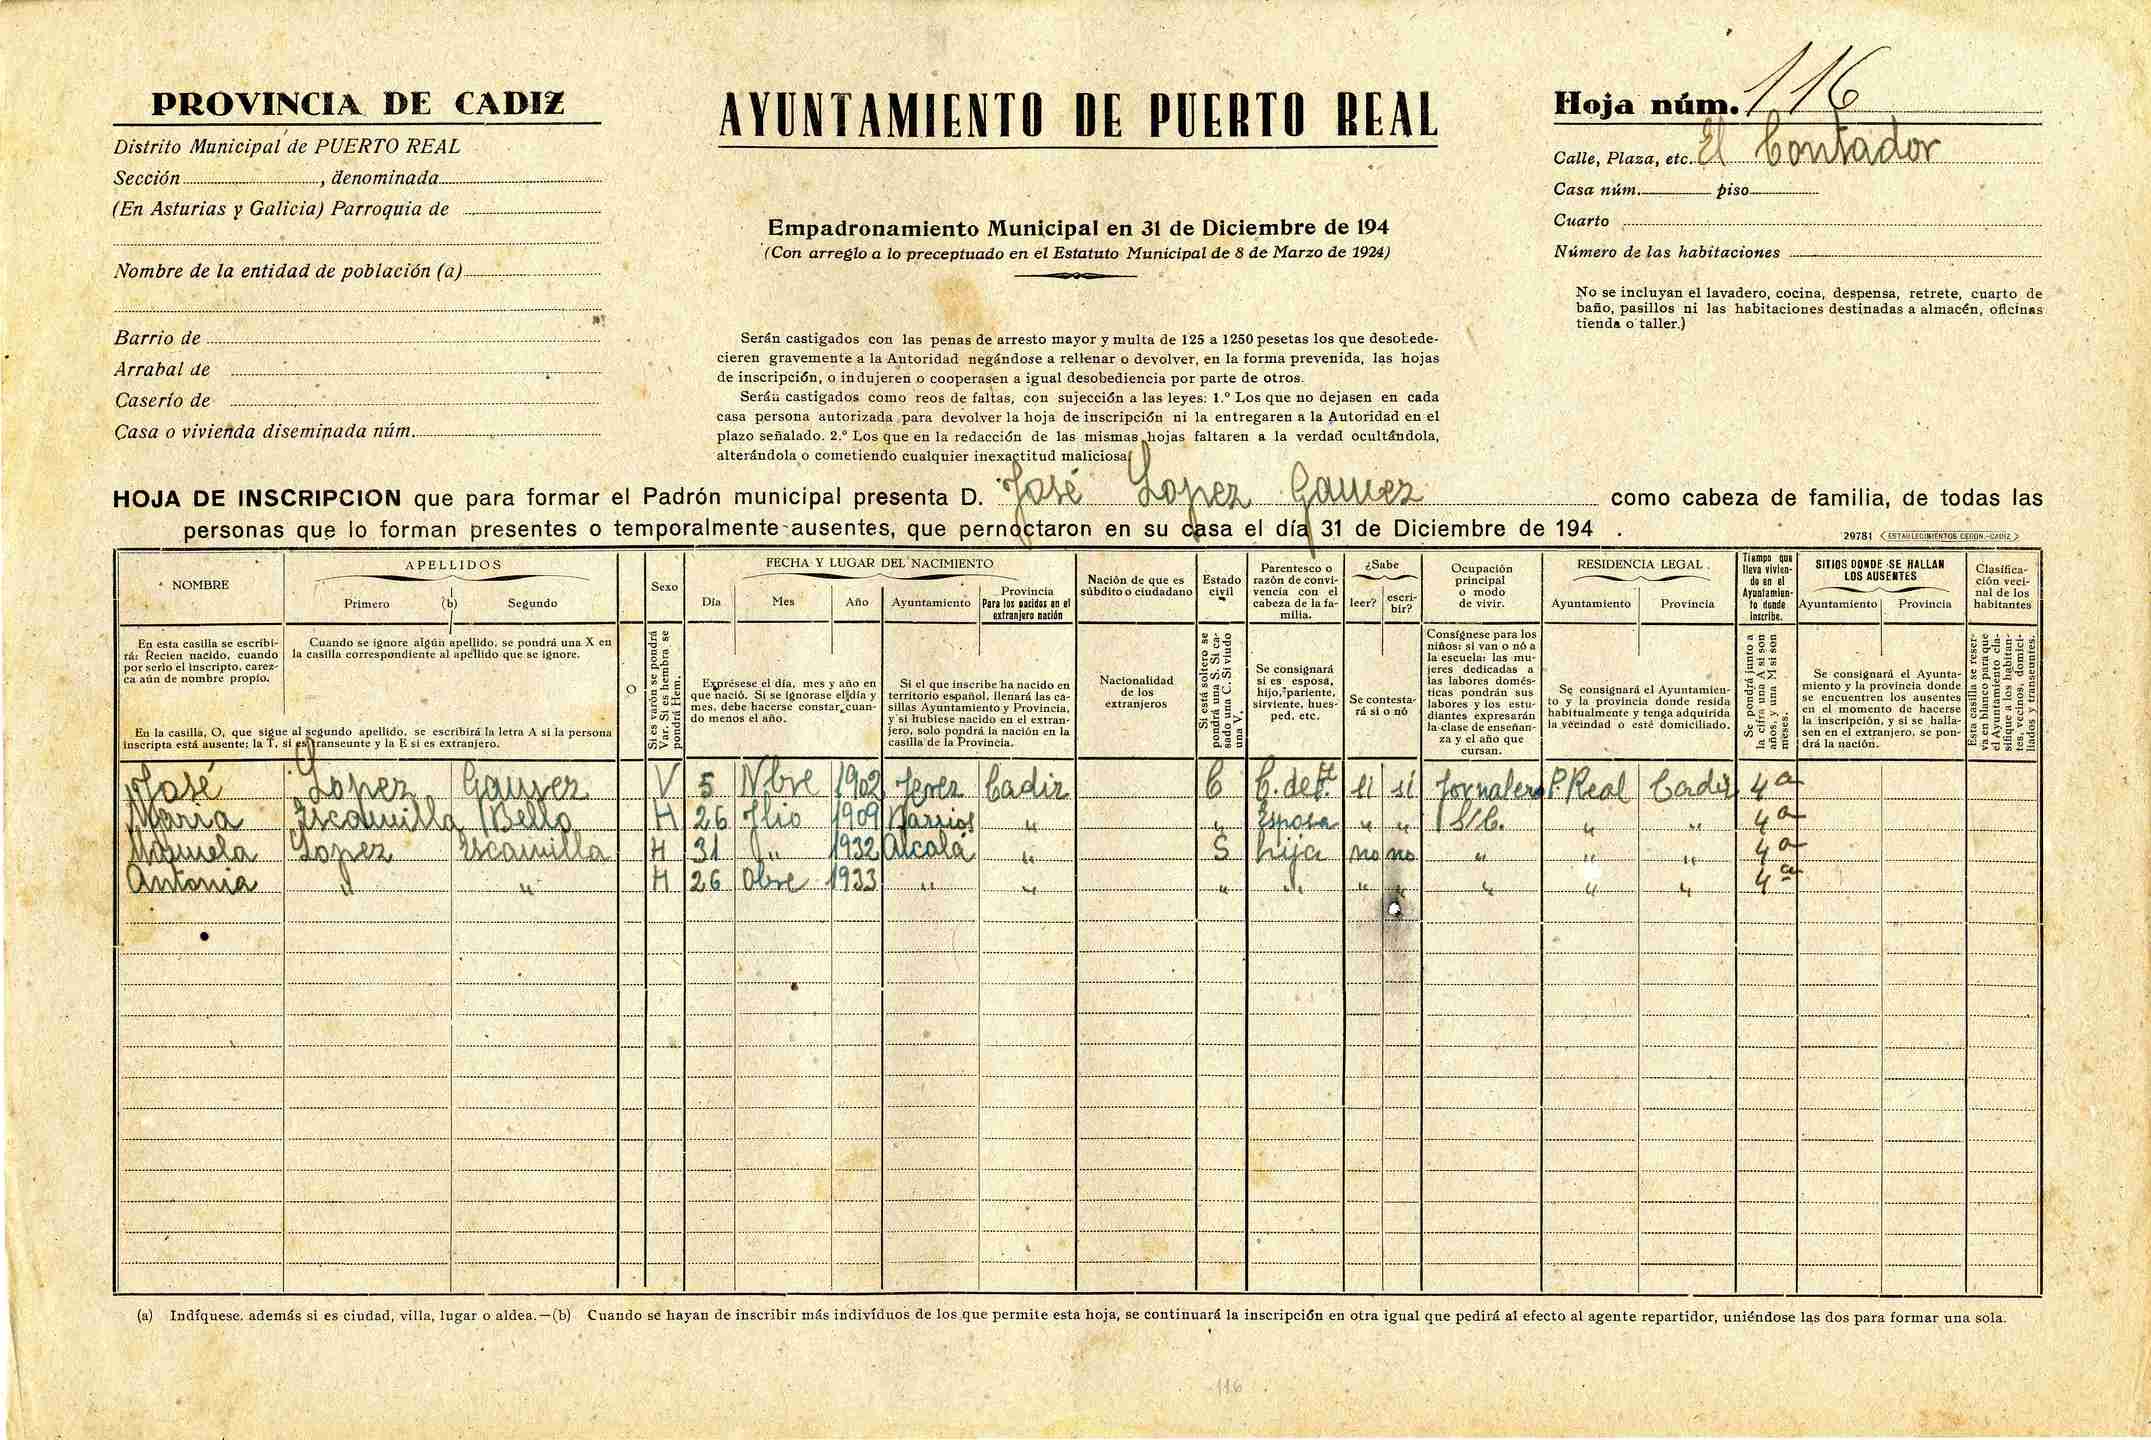 PROVINCIA DE CADIZ
Distrito Municipal de PUERTO REAL
Sección , denominada
(En Asturias y Galicia) Parroquia de
Nombre de la entidad de población (a)
Barrio de
Arrabal de
Caserío de
Casa o vivienda diseminada núm.
AYUNTAMIENTO DE PUERTO REAL
Empadronamiento Municipal en 31 de Diciembre de 194
(Con arreglo a lo preceptuado en el Estatuto Municipal de 8 de Marzo de 1924)
Serán castigados con las penas de arresto mayor y multa de 125 a 1250 pesetas los que desobede-
cieren gravemente a la Autoridad negándose a rellenar o devolver, en la forma prevenida, las hojas
de inscripción, o indujeren o cooperasen a igual desobediencia por parte de otros.
Serán castigados como reos de faltas, con sujección a las leyes: 1.º Los que no dejasen en cada
casa persona autorizada para devolver la hoja de inscripción ni la entregaren a la Autoridad en el
plazo señalado. 2.º Los que en la redacción de las mismas hojas faltaren a la verdad ocultándola,
alterándola o cometiendo cualquier inexactitud maliciosa.
Hoja núm. 116
Calle, Plaza, etc. El Contador
Casa núm. piso
Cuarto
Número de las habitaciones
No se incluyan el lavadero, cocina, despensa, retrete, cuarto de
baño, pasillos ni las habitaciones destinadas a almacén, oficinas
tienda o taller.)
HOJA DE INSCRIPCION que para formar el Padrón municipal presenta D. José Lopez Gamez como cabeza de familia, de todas las
personas que lo forman presentes o temporalmente ausentes, que pernoctaron en su casa el día 31 de Diciembre de 194 .
29781 ESTABLECIMIENTOS CERON.-CADIZ
NOMBRE
En esta casilla se escribi-
rá: Recien nacido, cuando
por serlo el inscripto, carez-
ca aún de nombre propio.
APELLIDOS
Primero (b) Segundo
Cuando se ignore algún apellido, se pondrá una X en
la casilla correspondiente al apellido que se ignore.
En la casilla, O, que sigue al segundo apellido, se escribirá la letra A si la persona
inscripta está ausente; la T, si es transeunte y la E si es extranjero.
O
Sexo
Si es varón se pondrá
Var. Si es hembra se
pondrá Hem.
FECHA Y LUGAR DEL NACIMIENTO
Día Mes Año Ayuntamiento
Provincia
Para los nacidos en el
extranjero nación
Exprésese el día, mes y año en
que nació. Si se ignorase el día y
mes, debe hacerse constar cuan-
do menos el año.
Si el que inscribe ha nacido en
territorio español, llenará las ca-
sillas Ayuntamiento y Provincia,
y si hubiese nacido en el extran-
jero, solo pondrá la nación en la
casilla de la Provincia.
Nación de que es
súbdito o ciudadano
Nacionalidad
de los
extranjeros
Estado
civil
Si está soltero se
pondrá una S. Si ca-
sado una C. Si viudo
una V.
Parentesco o
razón de convi-
vencia con el
cabeza de la fa-
milia.
Se consignará
si es esposa,
hijo, pariente,
sirviente, hues-
ped, etc.
¿Sabe
leer? escri-
bir?
Se contesta-
rá si o nó
Ocupación
principal
o modo
de vivir.
Consígnese para los
niños: si van o nó a
la escuela: las mu-
jeres dedicadas a
las labores domés-
ticas pondrán sus
labores y los estu-
diantes expresarán
la clase de enseñan-
za y el año que
cursan.
RESIDENCIA LEGAL.
Ayuntamiento Provincia
Se consignará el Ayuntamien-
to y la provincia donde resida
habitualmente y tenga adquirida
la vecindad o esté domiciliado.
Tiempo que
lleva vivien-
do en el
Ayuntamien-
to donde
inscribe.
Se pondrá junto a
la cifra una A si son
años, y una M si son
meses.
SITIOS DONDE SE HALLAN
LOS AUSENTES
Ayuntamiento Provincia
Se consignará el Ayunta-
miento y la provincia donde
se encuentren los ausentes
en el momento de hacerse
la inscripción, y si se halla-
sen en el extranjero, se pon-
drá la nación.
Clasifica-
ción veci-
nal de los
habitantes
Esta casilla se reser-
va en blanco para que
el Ayuntamiento cla-
sifique a los habitan-
tes, vecinos, domici-
liados y transeuntes.
José Lopez Gamez V 5 Nbre 1902 Jerez Cadiz C C. de fª. si si Jornalero P. Real Cadiz 4 a
Maria Escamilla Bello H 26 Jlio 1909 Barrios " " Esposa " " S/C. " " 4 a
Manuela Lopez Escamilla H 31 " 1932 Alcalá " S hija no no " " " 4 a
Antonia " " H 26 Obre 1933 " " " " " " " " " 4 a
(a) Indíquese, además si es ciudad, villa, lugar o aldea.—(b) Cuando se hayan de inscribir más indivíduos de los que permite esta hoja, se continuará la inscripción en otra igual que pedirá al efecto al agente repartidor, uniéndose las dos para formar una sola.
116